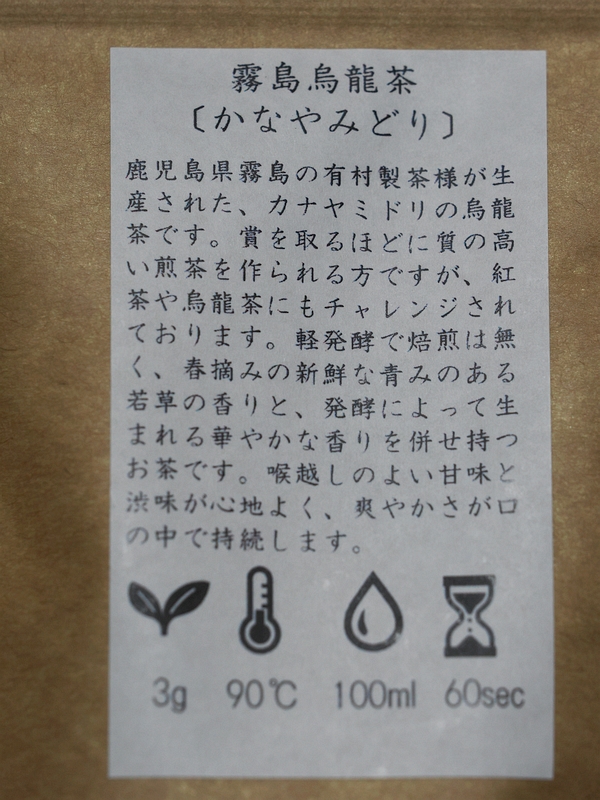 霧島烏龍茶
〔かなやみどり〕
鹿児島県霧島の有村製茶様が生
産された、カナヤミドリの烏龍
茶です。賞を取るほどに質の高
い煎茶を作られる方ですが、紅
茶や烏龍茶にもチャレンジされ
ております。軽発酵で焙煎は無
く、春摘みの新鮮な青みのある
若草の香りと、発酵によって生
まれる華やかな香りを併せ持つ
お茶です。喉越しのよい甘味と
渋味が心地よく、爽やかさが口
の中で持続します。
3g 90℃ 100ml 60sec